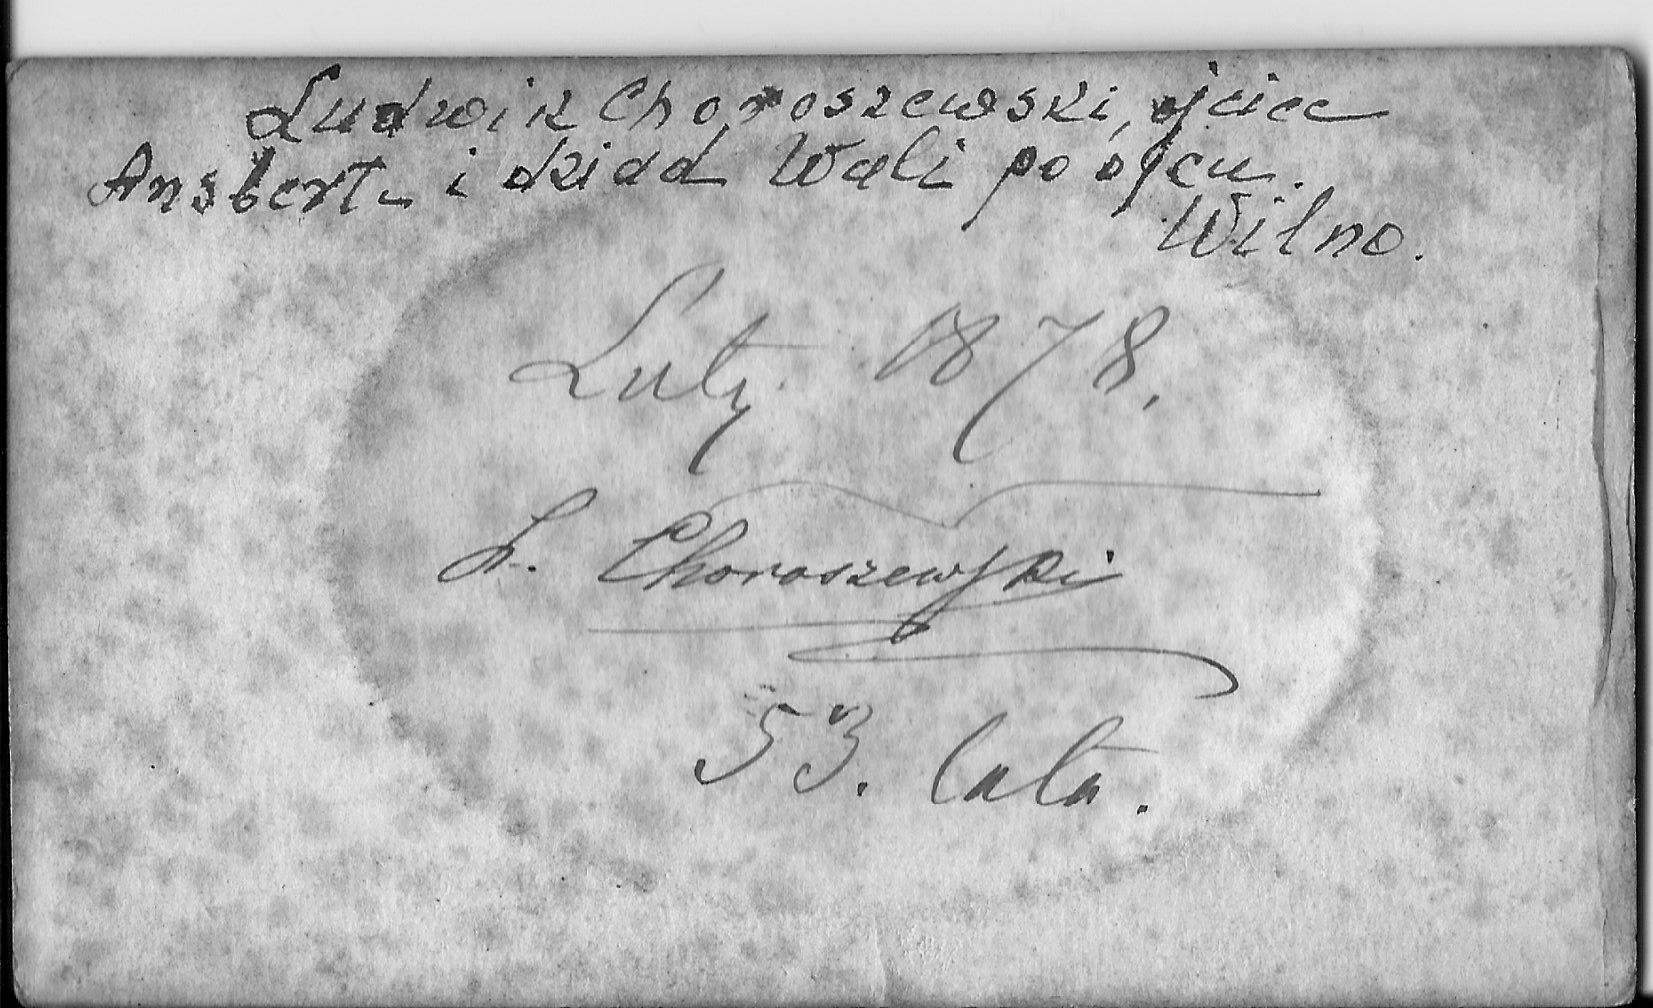 Ludwik Choroszewski, ojciec
Ansberta i dziad Wali po ojcu.
Wilno.
Luty 1878.
L. Choroszewski
53. lata.